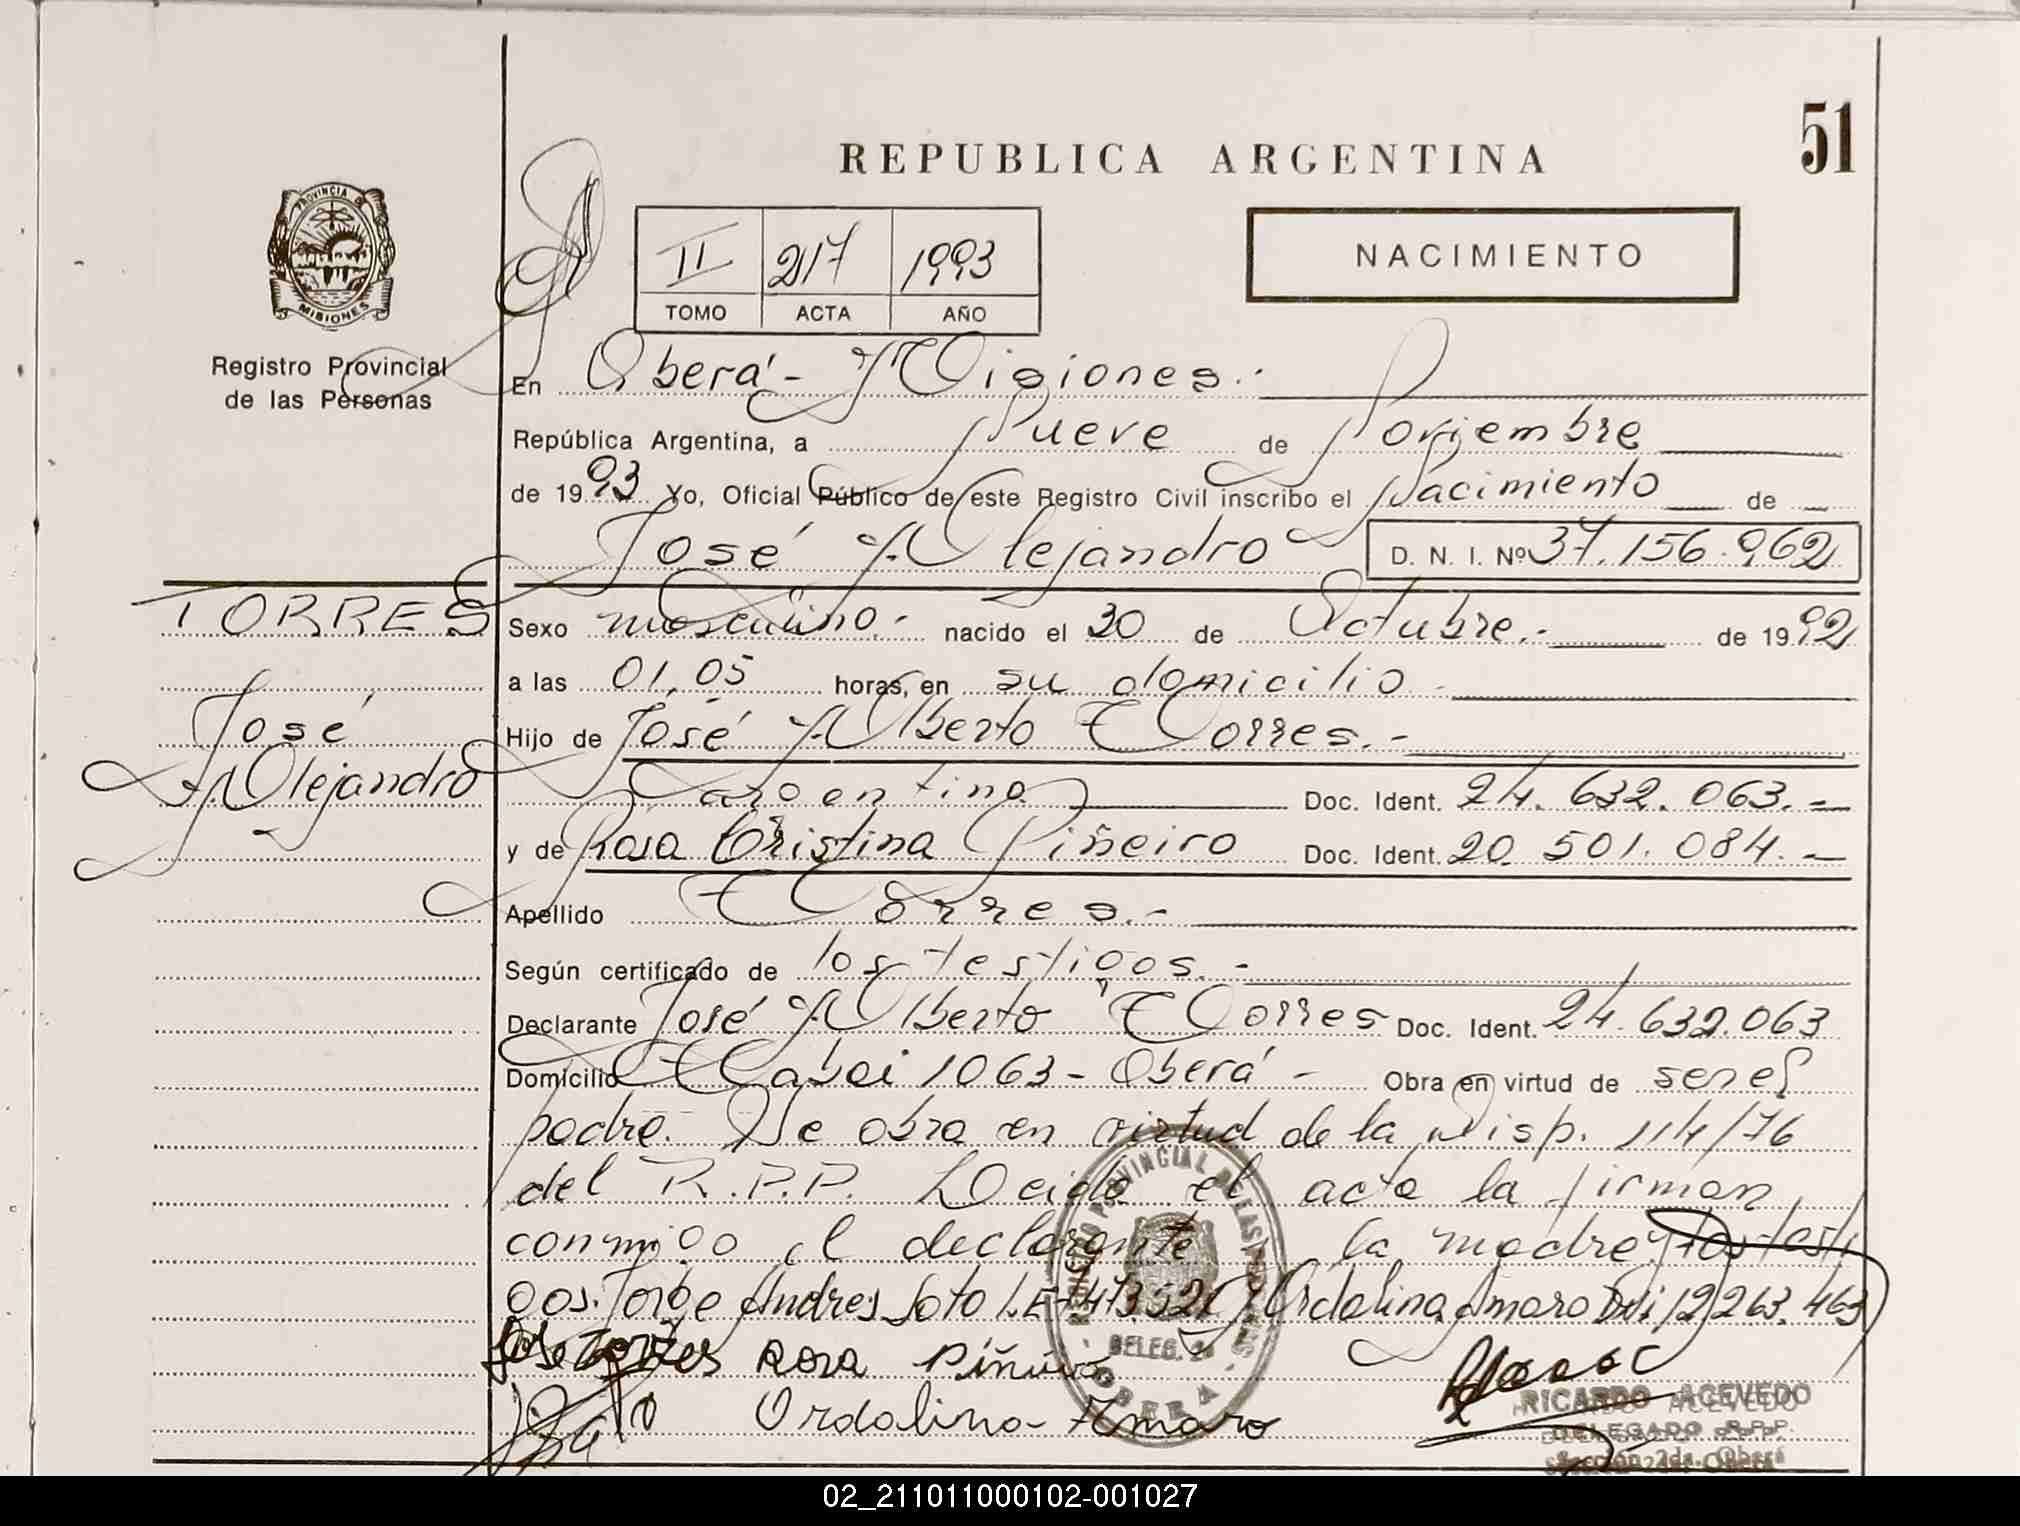 REPUBLICA ARGENTINA
51
PROVINCIA DE
MISIONES
Registro Provincial
de las Personas
II 217 1993
TOMO ACTA AÑO
NACIMIENTO
En Oberá - Misiones.-
República Argentina, a Nueve de Noviembre
de 1993 Yo, Oficial Público de este Registro Civil inscribo el Nacimiento de
José Alejandro D. N. I. Nº 37.156.962
TORRES
José
Alejandro
Sexo masculino.- nacido el 30 de Octubre.- de 1992
a las 01,05 horas, en su domicilio -
Hijo de José Alberto Torres.-
argentino Doc. Ident. 24.632.063.-
y de Rosa Cristina Piñeiro Doc. Ident. 20.501.084.-
Apellido Torres.-
Según certificado de los testigos.-
Declarante José Alberto Torres Doc. Ident. 24.632.063
Domicilio 1063 - Oberá - Obra en virtud de ser el
padre. Se obra en virtud de la Disp. 114/76
del R.P.P. Leida el acta la firman
conmigo el declarante la madre y los testi
gos. Jorge Andres Soto L.E. y Ordalina Amaro DNI 12.263.463
Jose Torres Rosa Piñeiro
Ordalina Amaro
REGISTRO PROVINCIAL DE LAS PERSONAS
DELEG. 2a
OBERA
RICARDO ACEVEDO
DELEGADO R.P.P.
Sección 2da. Oberá
02_211011000102-001027